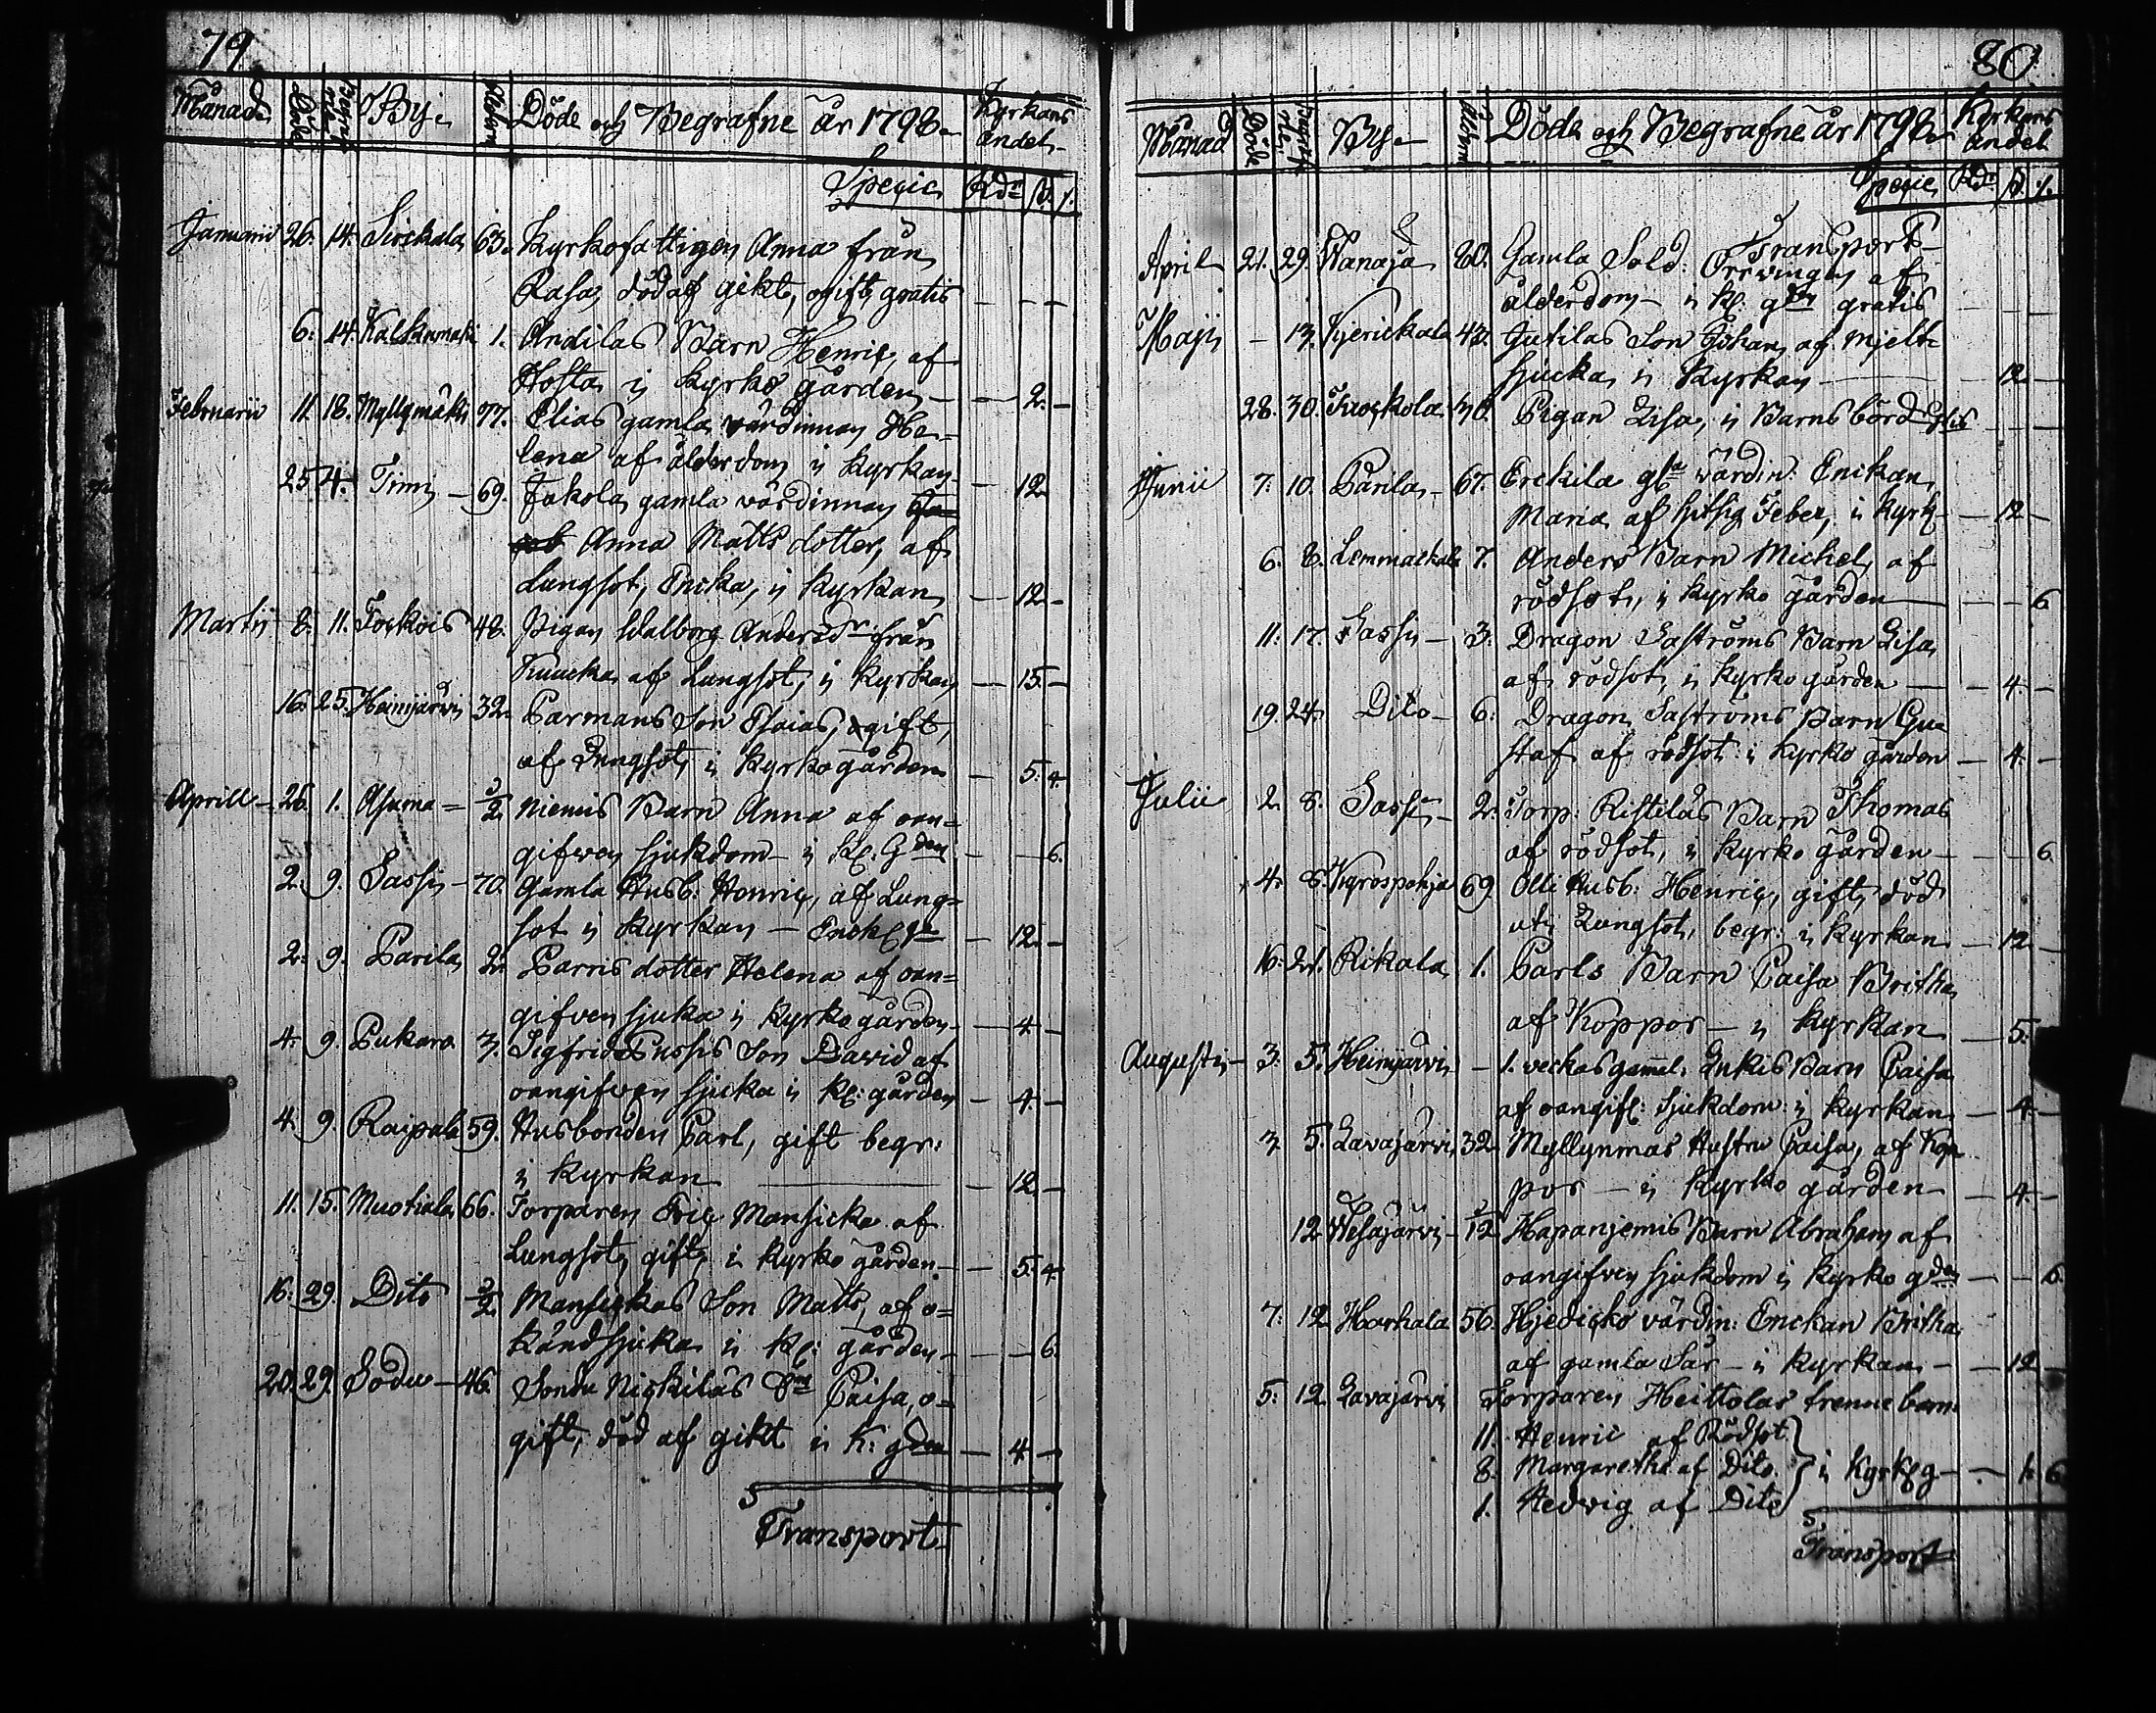 79
Månad Döde Begrafne By Ålder Döde och Begrafne år 1798 Kyrkans andel
Specie Rdr ß. r.
Januarii 26. 14. Sirckala 63. Kyrkofattigen Anna från
Rasa, död af gikt, ogift, gratis - - -
6. 14. Kalkunmäki 1. Andilas Barn Henric, af
Hosta i Kyrko gården - 2. -
Februarii 11. 18. Myllymäki 77. Elias gamla värdinnan He=
lena af ålderdom i Kyrkan - 12
25. 4. Timi - 69. Jakola gamla värdinnan
Anna Matts dotter, af
Lungsot, Encka, i Kyrkan - 12 -
Martii 8. 11. Torkois 48. Pigan Walborg Andersdr från
Kuucka af Lungsot, i Kyrkan - 15 -
16. 25. Heinijärvi 32. Parmans Son Esaias, ogift,
af Lungsot, i Kyrkogården - 5. 4
Aprill - 26. 1. Asuma = 3/2 Niemis Barn Anna af oan=
gifven sjukdom - i K: Gden - - 6.
2. 9. Sassi - 70. Gamla Husb: Henric, af Lung=
sot i Kyrkan - - 12. -
2. 9. Parila 2. Parris dotter Helena af oan=
gifven sjuka i Kyrkogården - 4. -
4. 9. Pukara 3. Sigfrid Pussis Son David af
oangifven sjucka i K: gården - 4. -
4. 9. Raipala 59. Husbonden Carl, gift begr:
i Kyrkan - 12 -
11. 15. Muotiala 66. Torparen Eric Mansicka af
Lungsot, gift, i Kyrko gården - 5. 4.
16. 29. Dito 3/2 Mansickas Son Matts, af o=
känd sjuka i K: gården - - 6.
20. 29. Sodu - 46. Sondu Nickilas Caisa, o=
gift, död af gikt i K: gden - 4 -
Transport
80
Månad Döde Begrafne By Ålder Döde och Begrafne år 1798 Kyrkans andel
Specie Rdr ß. r.
Transport
April 21. 29. Wanaja 80. Gamla Sold: Orrvingen af
ålderdom - i K: gden gratis - - -
Maji - 13. Kjerickala 43. Jutilas Son Johan af mjelt=
sjucka i Kyrkan - 12 -
28. 30. Pigan Lisa, i Barnsbörd gtis - - -
Junii 7. 10. Parila - 67. Erckila gla värdin: Enckan
Maria af hitsig Feber, i Kyrk - 12 -
6. 8. Lemmackala 7. Anders Barn Michel, af
rödsot, i Kyrko gården - - 6
11. 17. Sassi - 3. Dragon Saströms Barn Lisa
af rödsot, i Kyrko gården - 4. -
19. 24. Dito - 6. Dragon Saströms Barn Gu=
staf af rödsot i Kyrko gården - 4. -
Julii 2. 8. Sassi - 2. Torp: Ristilas Barn Thomas
af rödsot, i Kyrko gården - - 6
4. 8. Kyrospohja 69. Olli Husb: Henric, gift, död
uti Lungsot, begr: i Kyrkan - 12 -
16. 21. Rikala 1. Carls Barn Caisa Britha
af Koppor - i Kyrkan - 5.
Augusti - 3. 5. Heinijärvi - 1. veckas gammel: Enkis Barn Caisa
af oangif: sjukdom i Kyrkan - 4. -
3. 5. Lavajärvi 32. Myllynmas Hustru Caisa, af Kop=
por - i Kyrko gården - 4. -
12 Wesajärvi - 3/12 Hapaniemis Barn Abraham af
oangifven sjukdom i Kyrko gden - - 6.
7. 12. Harhala 56. Hjedicko värdin: Enckan Britha
af gamla Sår - i Kyrkan - 12 -
5. 12. Lavajärvi Torparen Heittolas trenne barn
11. Henric af Rödsot
8. Margaretha af Dito } i Kyrk:g - - 1. 6
1. Hedvig af Dito
Transport